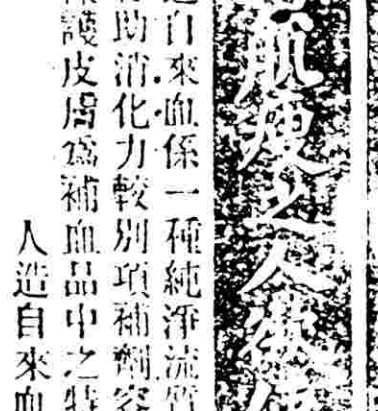 肌瘦之人
自來血係一種純淨流質
助消化力較別項補劑容
護皮膚爲補血品中之特
人造自來血